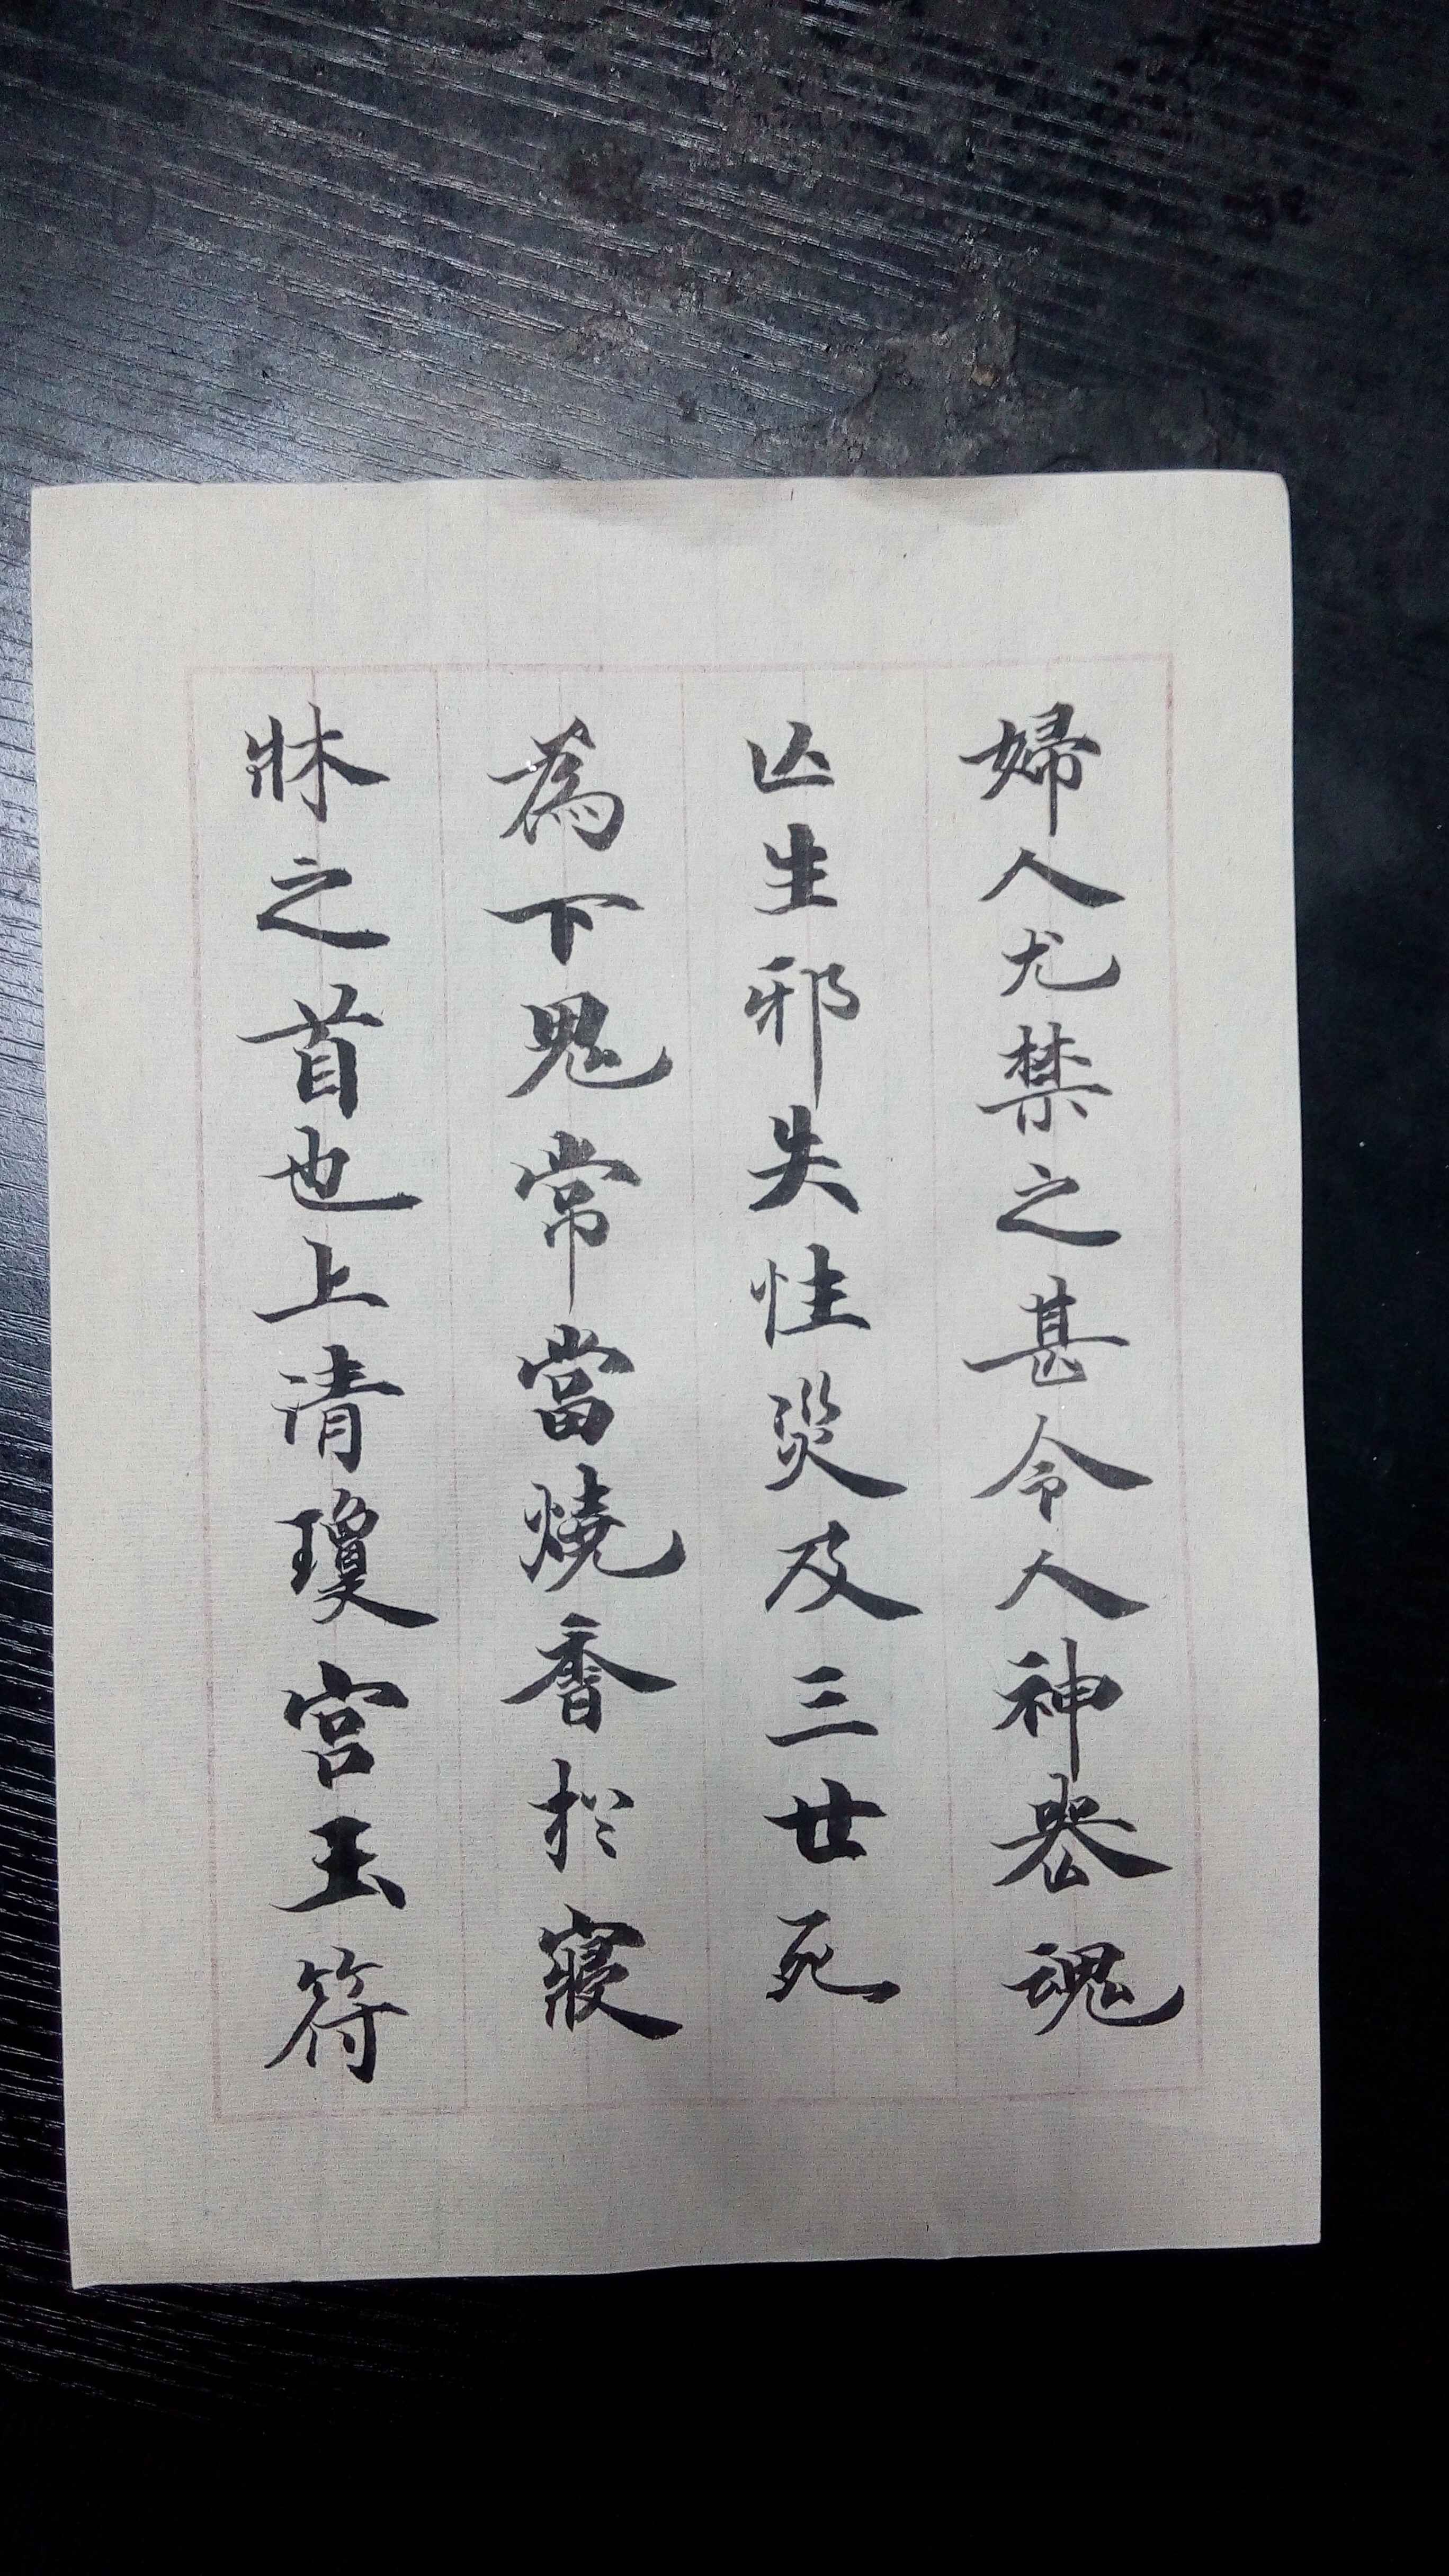 婦人尤禁之甚令人神喪魂
亾生邪失性災及三世死
為下鬼常當燒香扵寢
牀之首也上清瓊宮玉符